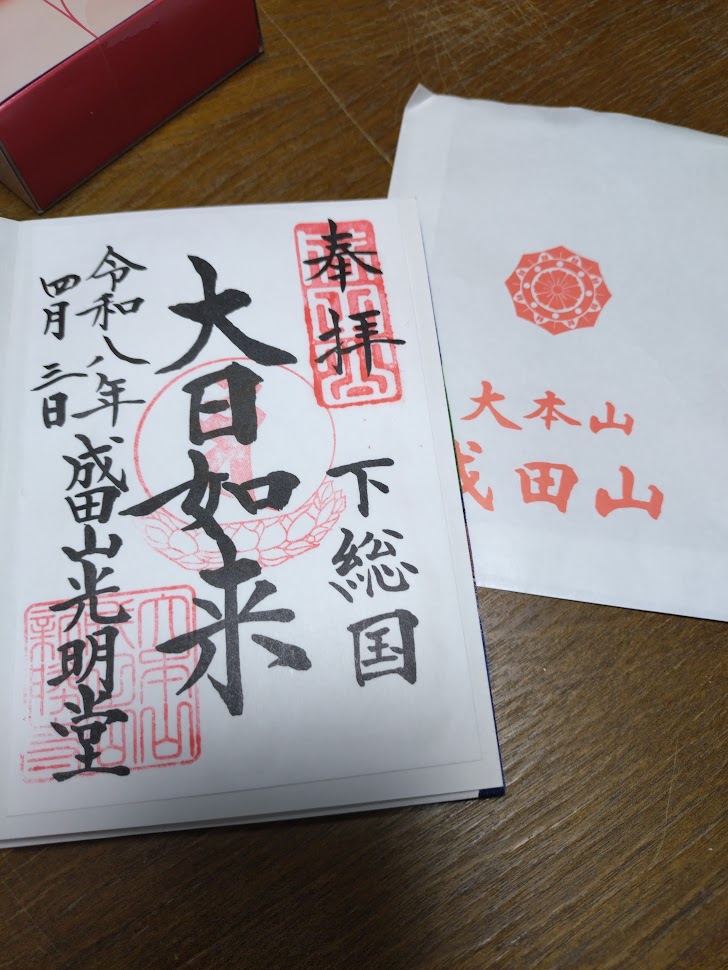 奉拝
下総国
大日如来
令和八年
四月三日
成田山光明堂
大本山
成田山